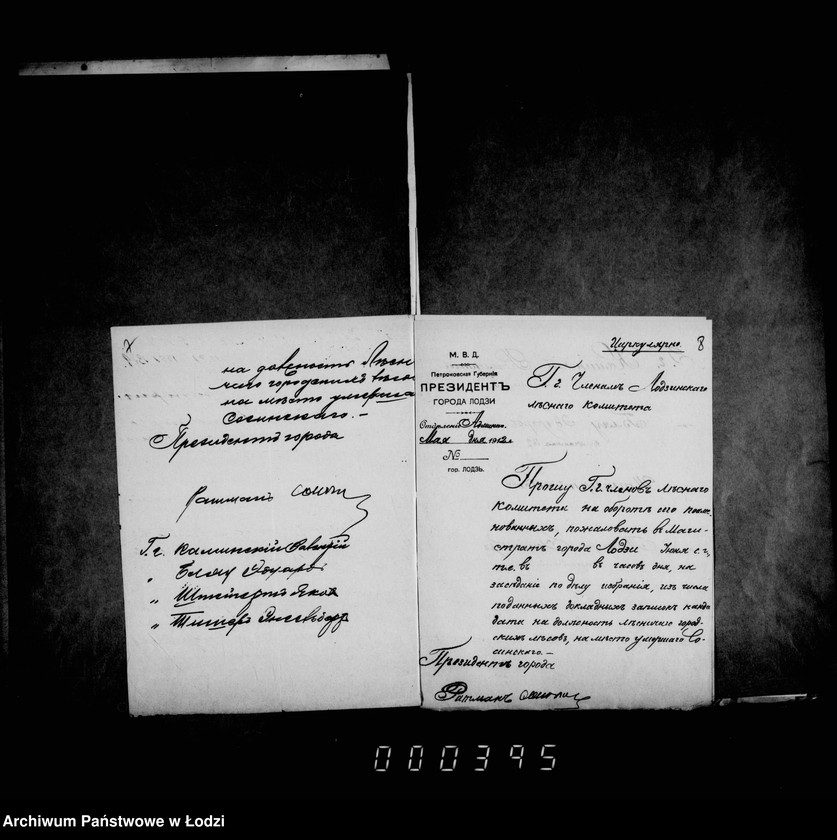 7
на должность Лѣсни-
чего городскихъ лѣсовъ
на мѣсто умершаго
Сосинскаго.—
Президентъ города
Ратманъ
Г.г. Каминскій
" Эдуардъ
"
"
Циркулярно. 8
М. В. Д.
Петроковская Губернія
ПРЕЗИДЕНТЪ
ГОРОДА ЛОДЗИ
Отдѣленіе
Мая дня 1912 г.
№
гор. ЛОДЗЬ.
Г.г. Членамъ Лодзинскаго
лѣснаго Комитета
Прошу Г.г. членовъ лѣснаго
Комитета на оборотѣ сего поиме-
нованныхъ, пожаловать въ Маги-
стратъ города Лодзи Іюня с. г.,
въ въ часовъ дня, на
засѣданіе по дѣлу избранія, изъ числа
поданныхъ докладныхъ записокъ канди-
дата на должность лѣсничаго город-
скихъ лѣсовъ, на мѣсто умершаго Со-
синскаго.—
Президентъ города
Ратманъ
000395
Archiwum Państwowe w Łodzi